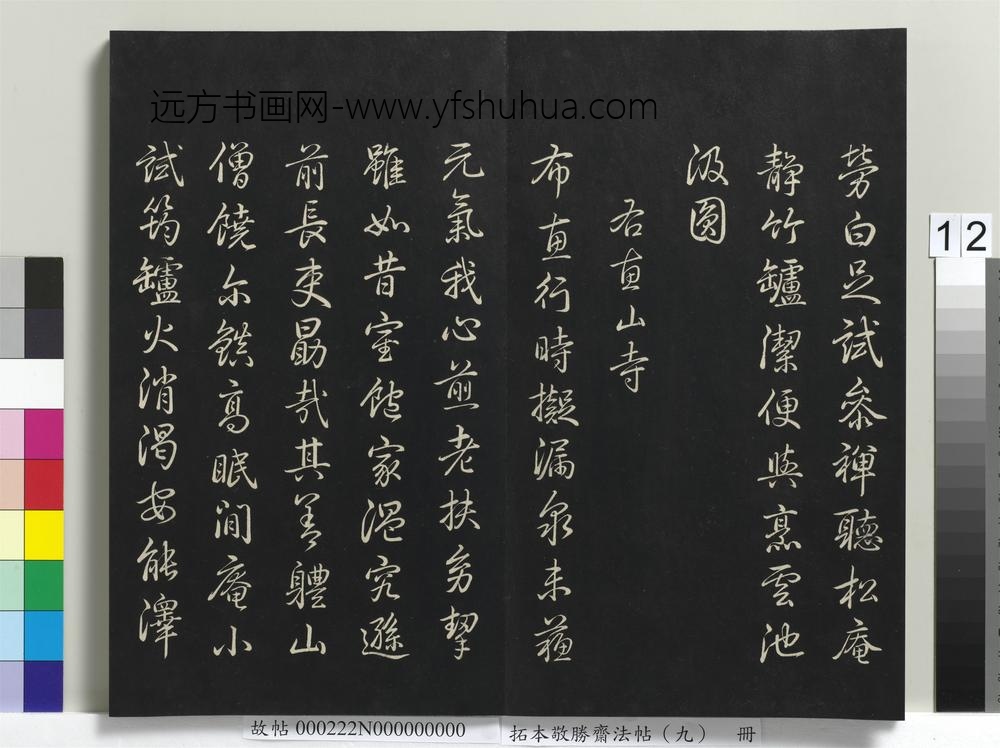 远方书画网-www.yfshuhua.com
勞白足試參禪聽松庵
靜竹罏潔便與烹雲池
汲圓
右惠山寺
布惠行時擬漏泉未蘇
元氣我心煎老扶幼挈
雖如昔室飽家溫究遜
前長吏勗哉其善體山
僧饒尔鎮高眠閒庵小
試筠罏火消渴安能澤
12
故帖 000222N000000000
拓本敬勝齋法帖（九） 冊